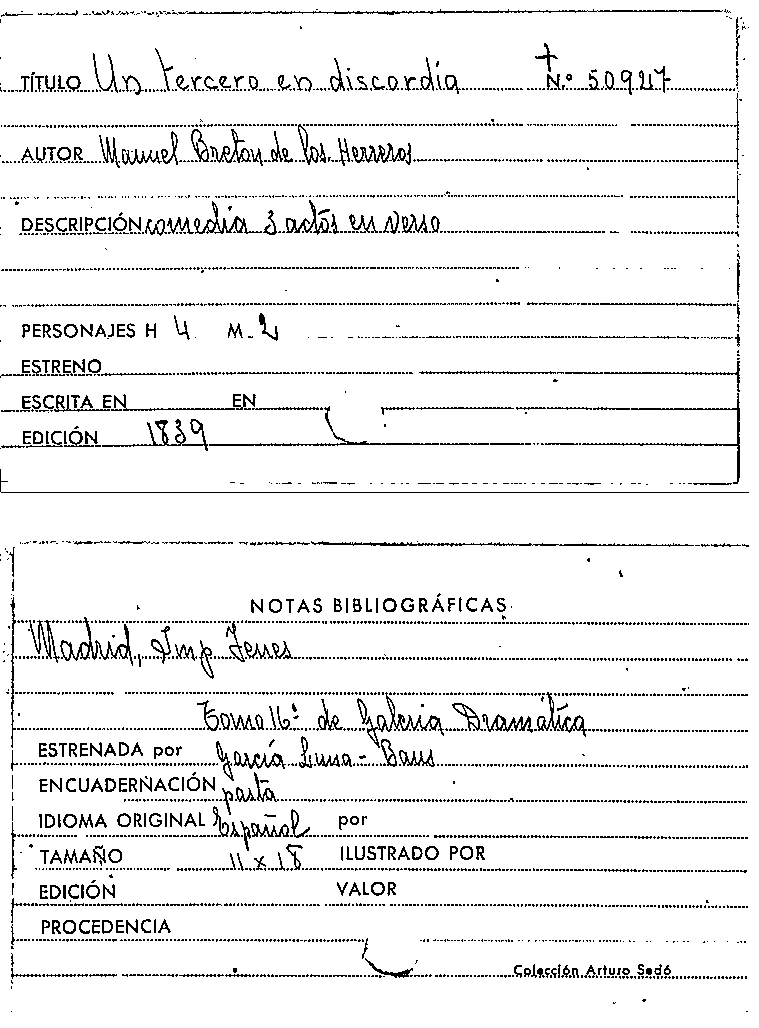 TÍTULO Un tercero en discordia N.º 50927
AUTOR Manuel Breton de los Herreros
DESCRIPCIÓN comedia 3 actos en verso
PERSONAJES H 4 M. 2
ESTRENO
ESCRITA EN EN
EDICIÓN 1839
NOTAS BIBLIOGRÁFICAS
Madrid, Imp Yenes
Tomo 16º de Galeria Dramática
ESTRENADA por García Luna - Baus
ENCUADERNACIÓN pasta
IDIOMA ORIGINAL Español por
TAMAÑO 11 x 18 ILUSTRADO POR
EDICIÓN VALOR
PROCEDENCIA
Colección Arturo Sedó